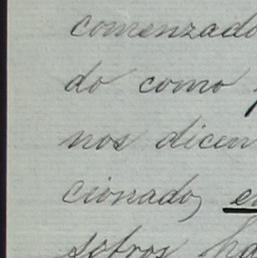 comenzado
do como
nos dicen
cionado, e
sotros ha